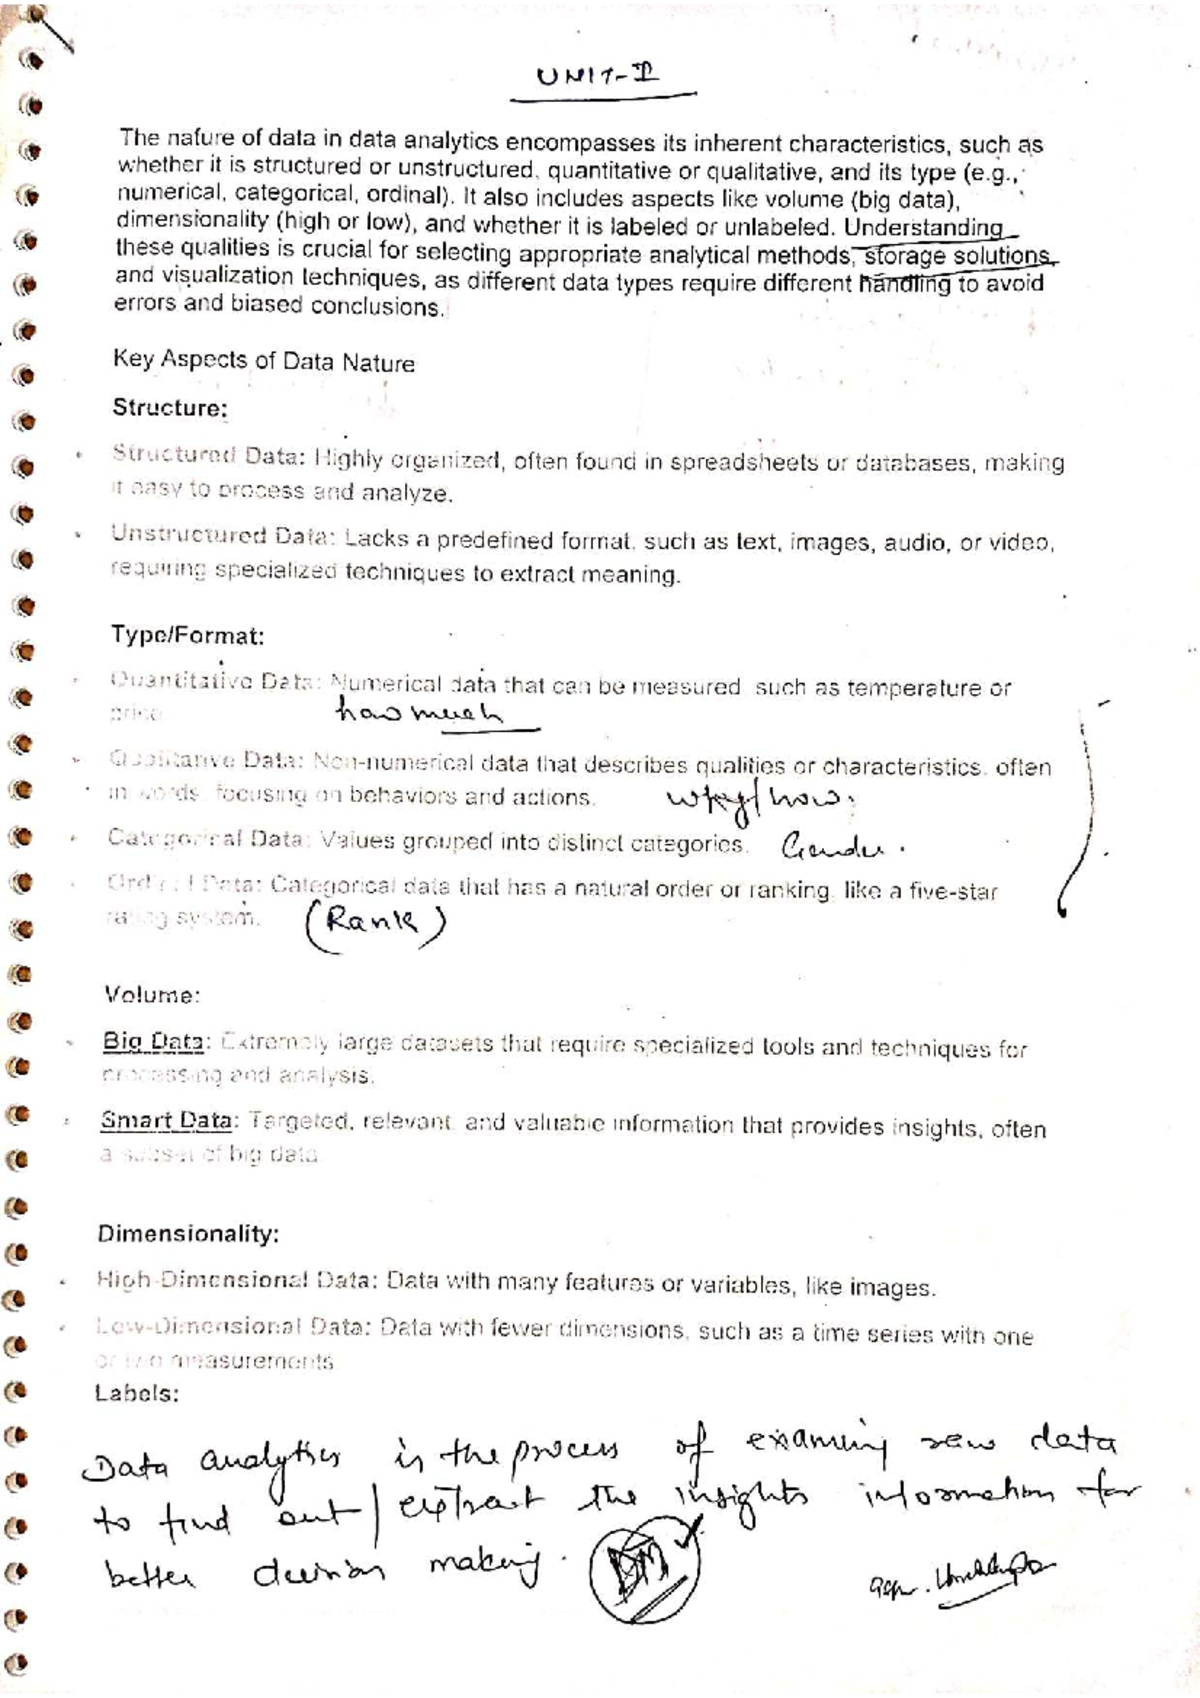 UNIT-II
The nature of data in data analytics encompasses its inherent characteristics, such as
whether it is structured or unstructured, quantitative or qualitative, and its type (e.g.,
numerical, categorical, ordinal). It also includes aspects like volume (big data),
dimensionality (high or low), and whether it is labeled or unlabeled. Understanding
these qualities is crucial for selecting appropriate analytical methods, storage solutions,
and visualization techniques, as different data types require different handling to avoid
errors and biased conclusions.
Key Aspects of Data Nature
Structure:
Structured Data: Highly organized, often found in spreadsheets or databases, making
it easy to process and analyze.
Unstructured Data: Lacks a predefined format, such as text, images, audio, or video,
requiring specialized techniques to extract meaning.
Type/Format:
Quantitative Data: Numerical data that can be measured such as temperature or
price
how much
Qualitative Data: Non-numerical data that describes qualities or characteristics, often
in words, focusing on behaviors and actions.
why/how.
Categorical Data: Values grouped into distinct categories. Gender.
Ordinal Data: Categorical data that has a natural order or ranking, like a five-star
rating system. (Rank)
Volume:
Big Data: Extremely large datasets that require specialized tools and techniques for
processing and analysis.
Smart Data: Targeted, relevant, and valuable information that provides insights, often
a subset of big data.
Dimensionality:
High-Dimensional Data: Data with many features or variables, like images.
Low-Dimensional Data: Data with fewer dimensions, such as a time series with one
or two measurements
Labels:
Data analytics is the process of examing raw data
to find out/extract the insights information for
better decision making.